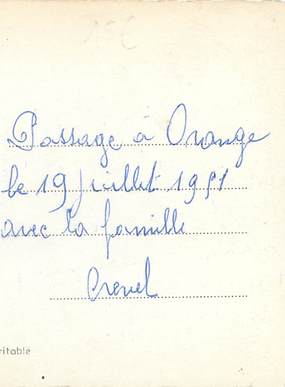 Passage à Orange
le 19 juillet 1951
avec la famille
Crevel
ritable